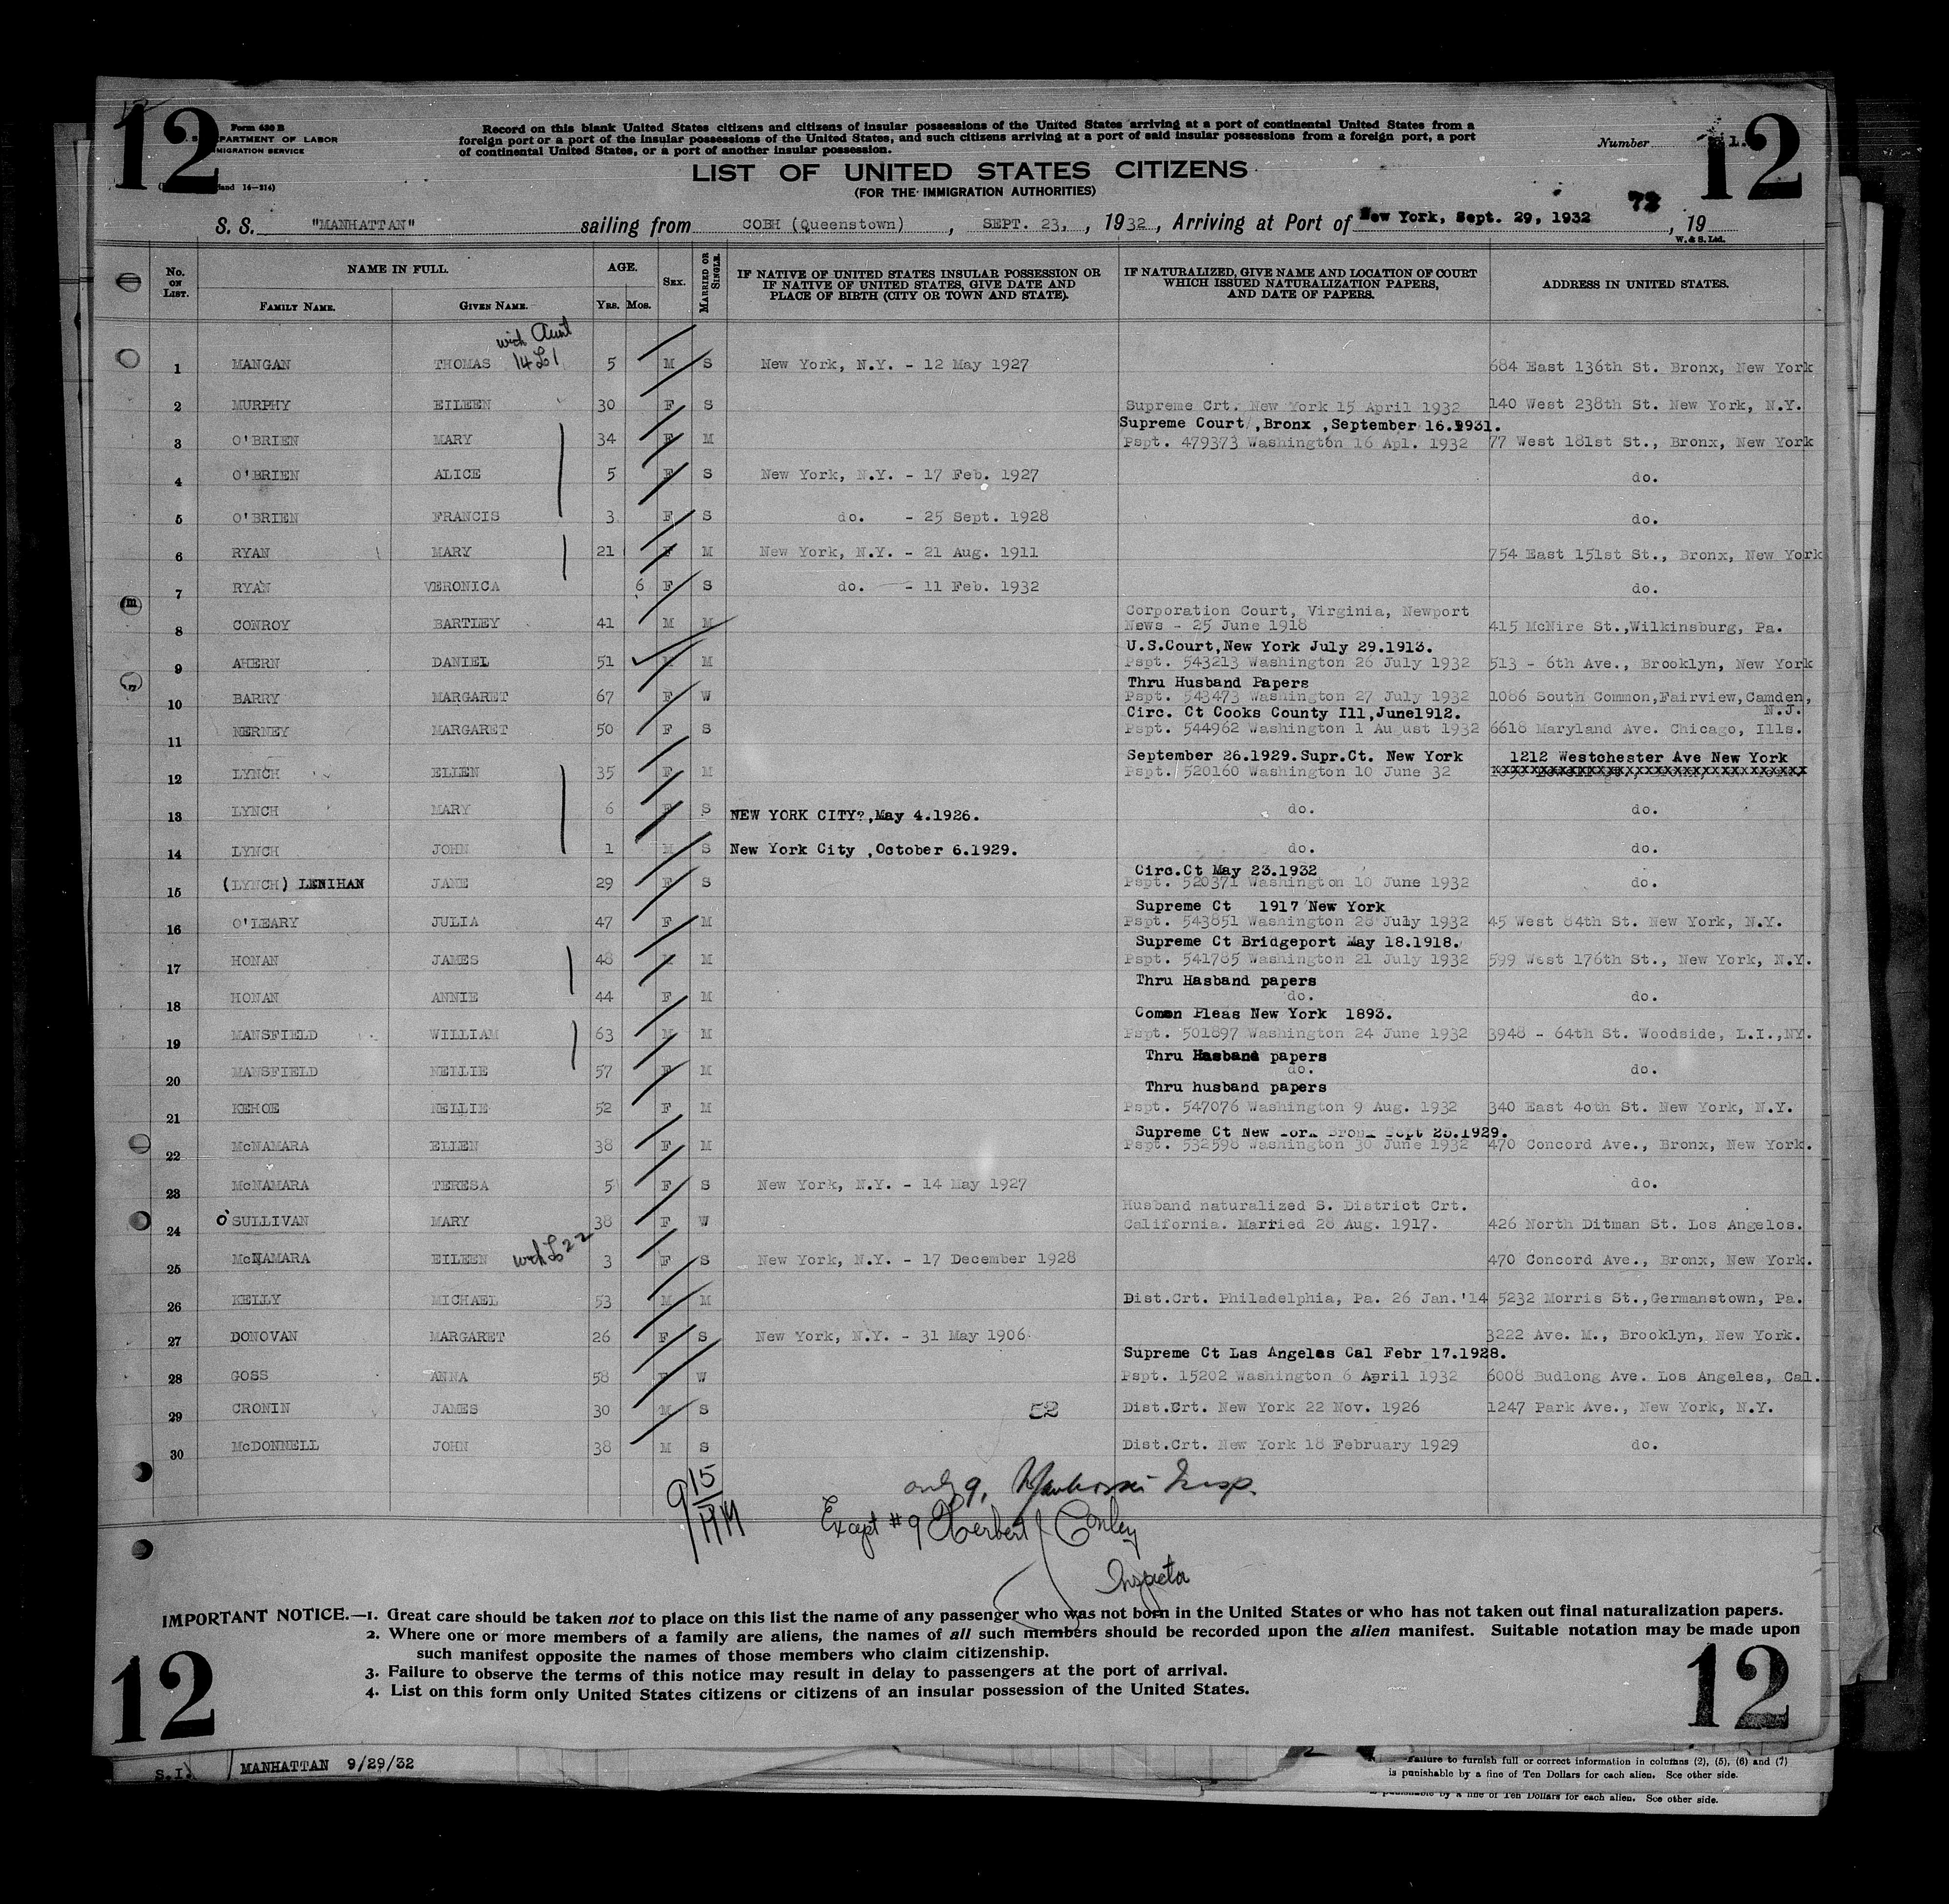 12 12
Form 630 B
DEPARTMENT OF LABOR
IMMIGRATION SERVICE
Record on this blank United States citizens and citizens of insular possessions of the United States arriving at a port of continental United States from a
foreign port or a port of the insular possessions of the United States, and such citizens arriving at a port of said insular possessions from a foreign port, a port
of continental United States, or a port of another insular possession.
Number 1.
LIST OF UNITED STATES CITIZENS
(FOR THE IMMIGRATION AUTHORITIES)
S. S. "MANHATTAN" sailing from COBH (Queenstown), SEPT. 23, , 1932, Arriving at Port of New York, Sept. 29, 1932 , 19
W. & S. Ltd.
No. ON LIST. NAME IN FULL. FAMILY NAME. GIVEN NAME. AGE. YRS. MOS. SEX. MARRIED OR SINGLE. IF NATIVE OF UNITED STATES INSULAR POSSESSION OR IF NATIVE OF UNITED STATES, GIVE DATE AND PLACE OF BIRTH (CITY OR TOWN AND STATE). IF NATURALIZED, GIVE NAME AND LOCATION OF COURT WHICH ISSUED NATURALIZATION PAPERS, AND DATE OF PAPERS. ADDRESS IN UNITED STATES.
with Aunt
14 L 1
1 MANGAN THOMAS 5 M S New York, N.Y. - 12 May 1927 684 East 136th St. Bronx, New York
2 MURPHY EILEEN 30 F S Supreme Crt. New York 15 April 1932 140 West 238th St. New York, N.Y.
Supreme Court, Bronx ,September 16.1931.
3 O'BRIEN MARY 34 F M Pspt. 479373 Washington 16 Apl. 1932 77 West 181st St., Bronx, New York
4 O'BRIEN ALICE 5 F S New York, N.Y. - 17 Feb. 1927 do.
5 O'BRIEN FRANCIS 3 F S do. - 25 Sept. 1928 do.
6 RYAN MARY 21 F M New York, N.Y. - 21 Aug. 1911 754 East 151st St., Bronx, New York
7 RYAN VERONICA 6 F S do. - 11 Feb. 1932 do.
Corporation Court, Virginia, Newport
8 CONROY BARTLEY 41 M M News - 25 June 1918 415 McNire St.,Wilkinsburg, Pa.
U.S.Court,New York July 29.1913.
9 AHERN DANIEL 51 M M Pspt. 543213 Washington 26 July 1932 513 - 6th Ave., Brooklyn, New York
Thru Husband Papers
10 BARRY MARGARET 67 F W Pspt. 543473 Washington 27 July 1932 1086 South Common,Fairview,Camden,
Circ. Ct Cooks County Ill,June1912. N.J.
11 NERNEY MARGARET 50 F S Pspt. 544962 Washington 1 August 1932 6618 Maryland Ave. Chicago, Ills.
September 26.1929.Supr.Ct. New York 1212 Westchester Ave New York
12 LYNCH ELLEN 35 F M Pspt. 520160 Washington 10 June 32
13 LYNCH MARY 6 F S NEW YORK CITY?,May 4.1926. do. do.
14 LYNCH JOHN 1 M S New York City ,October 6.1929. do. do.
Circ.Ct May 23.1932
15 (LYNCH) LENIHAN JANE 29 F S Pspt. 520371 Washington 10 June 1932 do.
Supreme Ct 1917 New York
16 O'LEARY JULIA 47 F M Pspt. 543851 Washington 28 July 1932 45 West 84th St. New York, N.Y.
Supreme Ct Bridgeport May 18.1918.
17 HONAN JAMES 48 M M Pspt. 541785 Washington 21 July 1932 599 West 176th St., New York, N.Y.
Thru Hasband papers
18 HONAN ANNIE 44 F M do. do.
Comon Pleas New York 1893.
19 MANSFIELD WILLIAM 63 M M Pspt. 501897 Washington 24 June 1932 3948 - 64th St. Woodside, L.I.,NY.
Thru Hasband papers
20 MANSFIELD NELLIE 57 F M do. do.
Thru husband papers
21 KEHOE NELLIE 52 F M Pspt. 547076 Washington 9 Aug. 1932 340 East 40th St. New York, N.Y.
Supreme Ct New York Bronx Sept 25.1929.
22 McNAMARA ELLEN 38 F M Pspt. 532598 Washington 30 June 1932 470 Concord Ave., Bronx, New York.
23 McNAMARA TERESA 5 F S New York, N.Y. - 14 May 1927 do.
Husband naturalized S. District Crt.
24 O'SULLIVAN MARY 38 F W California. Married 28 Aug. 1917. 426 North Ditman St. Los Angelos.
25 McNAMARA EILEEN with L 22 3 F S New York, N.Y. - 17 December 1928 470 Concord Ave., Bronx, New York.
26 KELLY MICHAEL 53 M M Dist.Crt. Philadelphia, Pa. 26 Jan.'14 5232 Morris St.,Germanstown, Pa.
27 DONOVAN MARGARET 26 F S New York, N.Y. - 31 May 1906 3222 Ave. M., Brooklyn, New York.
Supreme Ct Las Angeles Cal Febr 17.1928.
28 GOSS ANNA 58 F W Pspt. 15202 Washington 6 April 1932 6008 Budlong Ave. Los Angeles, Cal.
29 CRONIN JAMES 30 M S 52 Dist.Crt. New York 22 Nov. 1926 1247 Park Ave., New York, N.Y.
30 McDONNELL JOHN 38 M S Dist.Crt. New York 18 February 1929 do.
9 15 AM
only 9, Insp.
Except #9 Herbert J Conley
Inspector
IMPORTANT NOTICE.—1. Great care should be taken not to place on this list the name of any passenger who was not born in the United States or who has not taken out final naturalization papers.
2. Where one or more members of a family are aliens, the names of all such members should be recorded upon the alien manifest. Suitable notation may be made upon
such manifest opposite the names of those members who claim citizenship.
3. Failure to observe the terms of this notice may result in delay to passengers at the port of arrival.
4. List on this form only United States citizens or citizens of an insular possession of the United States.
12 12
S.I. MANHATTAN 9/29/32
Failure to furnish full or correct information in columns (2), (5), (6) and (7)
is punishable by a fine of Ten Dollars for each alien. See other side.
is punishable by a fine of Ten Dollars for each alien. See other side.